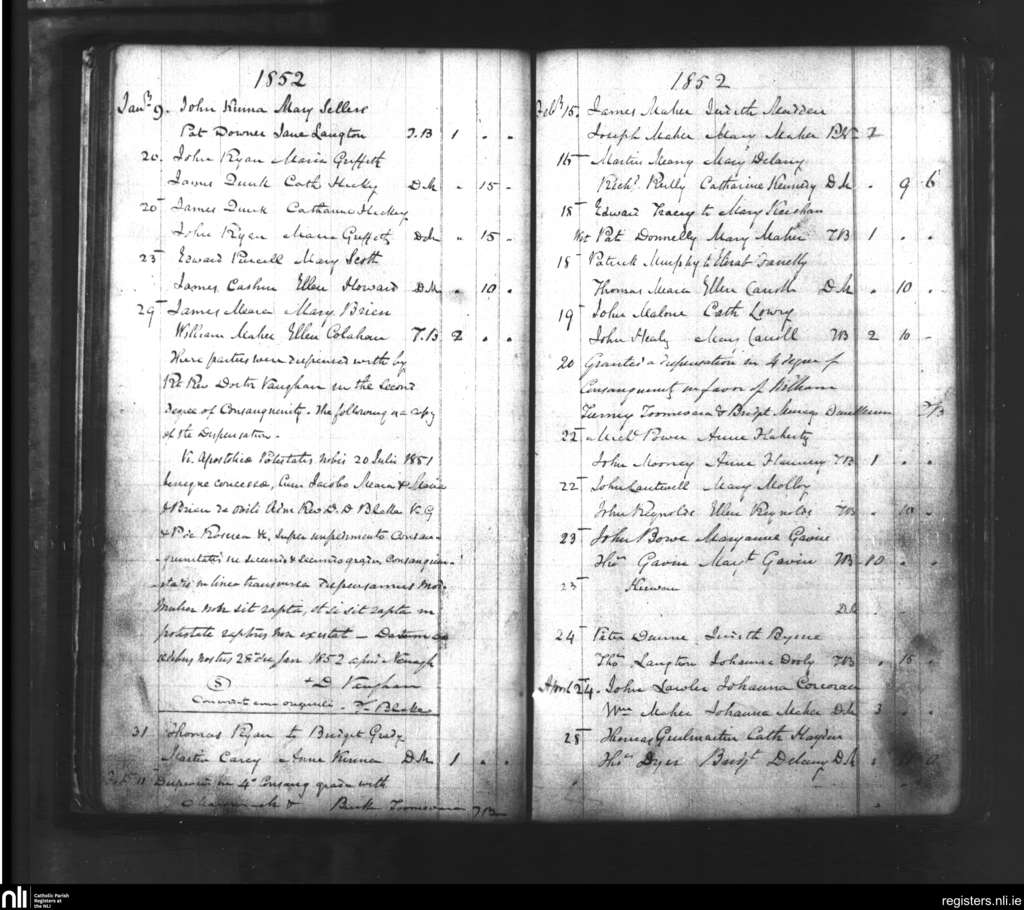 1852
Jan. 9. John Kinna Mary Sellers
Pat Downer Jane Langton T.B 1 . .
20. John Ryan Maria Guffett
James Quirk Cath Hickey D.M . 15 -
20 James Quirk Catharine Hickey
John Ryan Maria Guffett D.M . 15 .
25 Edward Purcell Mary Scott
James Cashin Ellen Howard D.M . 10 .
29 James Meara Mary Brien
William Maher Ellen Colahan T.B 2 . .
These parties were dispensed with by
Rt Rev Doctr Vaughan in the second
degree of Consanguinity. The following is a copy
of the Dispensation.
Vi Apostolica Potestatis nobis 20 Julii 1851
benigne concessa, Cum Jacobo Meara & Maria
Brien Rev. D. D Blake V. G
& P. de Roscrea &c, super impedimento Consan-
guinitatis in secundo & gradu Consanguini-
tatis in linea transversa dispensamus modo
mulier non sit rapta, et si sit rapta in
potestate raptoris non existat - Datum
ædibus nostris 28 die Jan 1852 apud Nenagh
S + D Vaughan
originali - T Blake
31 Thomas Ryan to Bridget Grady
Martin Carey Anne Kinna D.M 1 . .
Feb. 11 Dispensed in 4o Consang gradu with
& Burk Toomevara T B
1852
Feb. 15. James Maher Judith Madden
Joseph Maher Mary Maher
16 Martin Meany Mary Delany
Richd. Reilly Catharine Kennedy D.M . 9 6
18 Edward Tracey to Mary Keeshan
Wit Pat Donnelly Mary Maher TB 1 . .
18 Patrick Murphy to Fanelly
Thomas Meara Ellen Carroll D.M . 10 .
19 John Malone Cath Lowry
John Healy Mary Carroll TB 2 10 -
20 Granted a dispensation in 4 degree of
Consanguinity in favor of William
Tierney Toomevara & Bridgt TB
22 Michl Power Anne Flaherty
John Mooney Anne Flannery TB 1 . .
22 John Cantwell Mary Molloy
John Reynolds Ellen Reynolds TB . 10 .
23 John Bowe Maryanne Gavin
Thos Gavin Margt Gavin TB 10 . .
23 Keewan
D.M
24 Peter Dunne Judith Byrne
Thos Langton Johanna Dooly TB . 15 .
April 24. John Lawler Johanna Corcoran
Wm Maher Johanna Maher D.M 3 . .
28 Thomas Guilmartin Cath Hayden
Thos Dyer Bridgt Delany D.M
nli Catholic Parish
Registers at
the NLI
registers.nli.ie